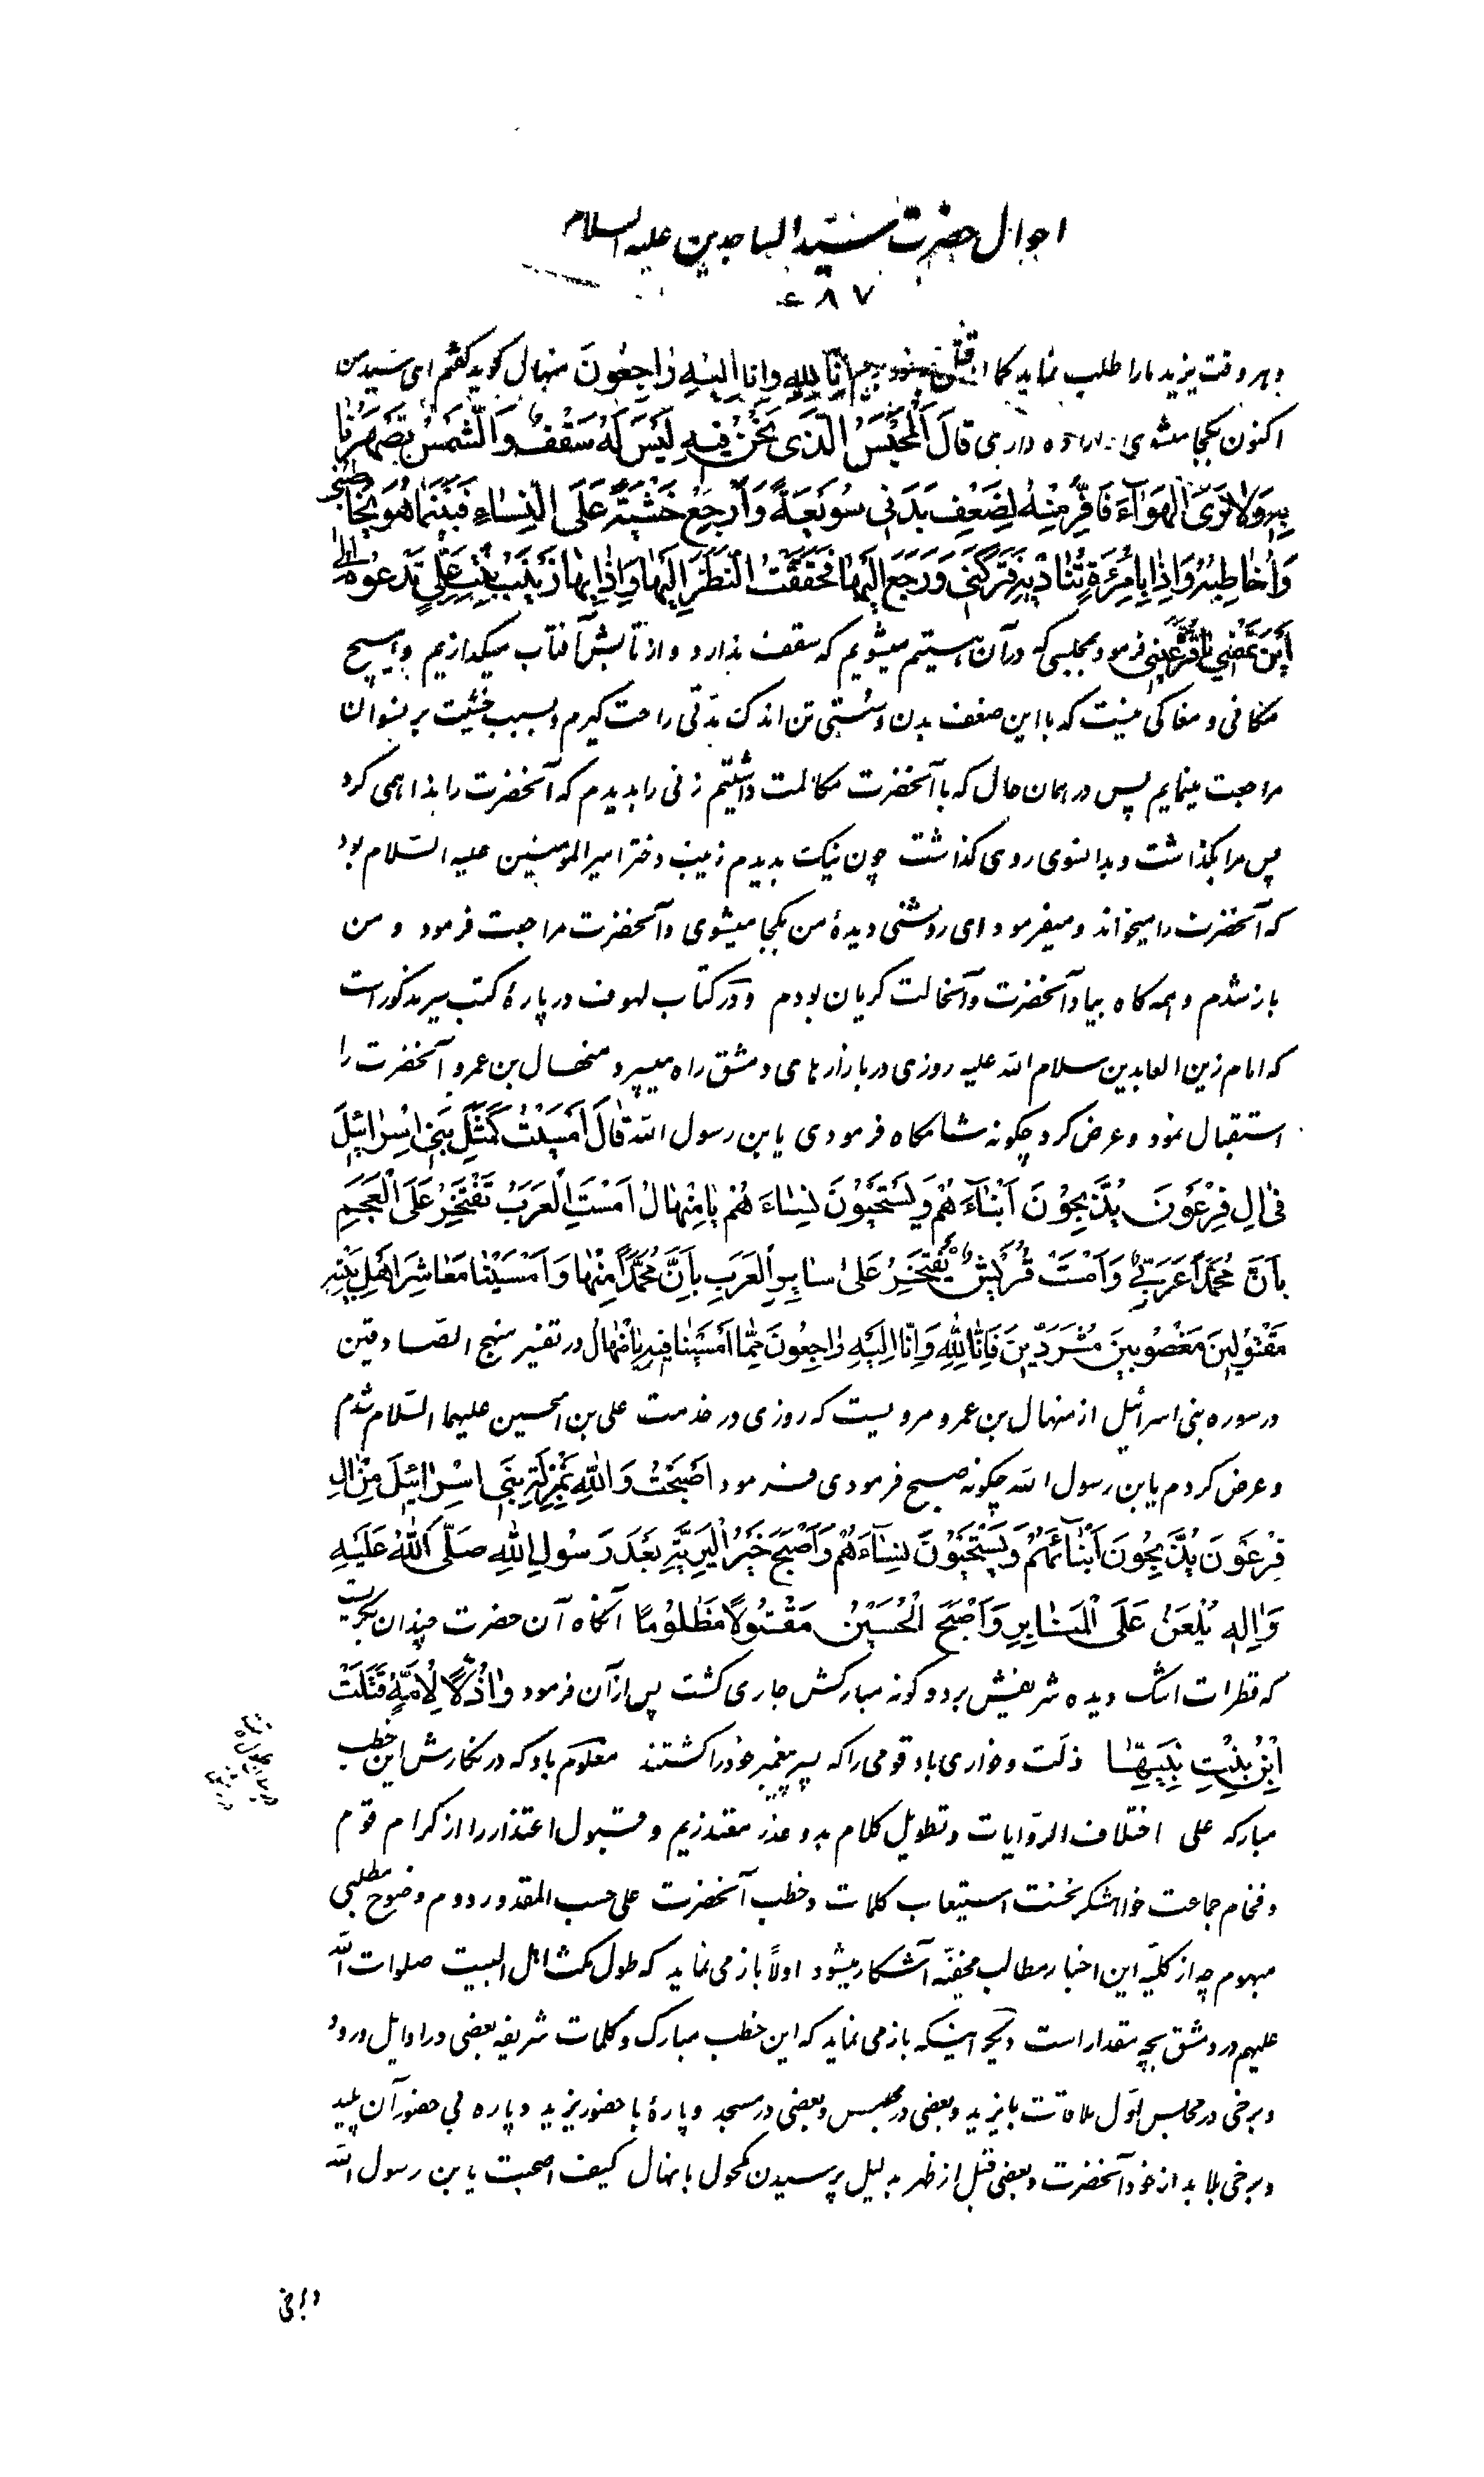 احوال حضرت سید الساجدین علیه السلام
۴۸۷
و هر وقت یزید ما را طلب نماید گمان قتل نمودیم اِنّا لِلّهِ وَاِنّا اِلَیْهِ رٰاجِعُونَ منهال کوید کفتم ای سید من
اکنون بکجا میشوی قالَ اَلْمَحْبَسُ الَّذی نَحْنُ فیهِ لَیْسَ لَهُ سَقْفٌ وَالشَّمْسُ تَصْهَرُنٰا
بِهِ وَلاٰ نَرَی الْهَوٰآءَ فَاَفِرُّ مِنْهُ لِضَعْفِ بَدَنی سُوَیْعَةً وَاَرْجِعُ خَشْیَةً عَلَی النِّسٰاءِ فَبَیْنَمٰا هُوَ یُخٰاطِبُنی
وَاُخٰاطِبُهُ وَاِذٰا بِامْرَئَةٍ تُنٰادیهِ فَتَرَکَنی وَرَجَعَ اِلَیْهٰا فَحَقَّقْتُ النَّظَرَ اِلَیْهٰا وَاِذٰا بِهٰا زَیْنَبُ بِنْتُ عَلِیٍّ تَدْعُوهُ اِلٰی
اَیْنَ تَمْضی یٰا قُرَّةَ عَیْنی فرمود بمجلسی که در آن هستیم میشویم که سقف ندارد و از تابش آفتاب میکدازیم و هیچ
مکانی و مغاکی نیست که با این ضعف بدن و سستی تن اندک مدتی راحت کیرم و بسبب خشیت بر نسوان
مراجعت مینمایم پس در همان حال که با آنحضرت مکالمت داشتیم زنی را بدیدم که آنحضرت را ندا همی کرد
پس مرا بگذاشت و بدانسوی روی گذاشت چون نیک بدیدم زینب دختر امیرالمؤمنین علیه السّلام بود
که آنحضرت را میخواند و میفرمود ای روشنی دیدهٔ من بکجا میشوی و آنحضرت مراجعت فرمود و من
باز شدم و همه کاه بیاد آنحضرت و آنحالت کریان بودم و در کتاب لهوف در پارهٔ کتب سیر مذکور است
که امام زین العابدین سلام الله علیه روزی در بازارهای دمشق راه میسپرد منهال بن عمرو آنحضرت را
استقبال نمود و عرض کرد چگونه شامکاه فرمودی یابن رسول الله قٰالَ اَمْسَیْتُ کَمَثَلِ بَنی اِسْرٰائیلَ
فی اٰلِ فِرْعَوْنَ یُذَبِّحُونَ اَبْنٰآءَهُمْ وَیَسْتَحْیُونَ نِسٰاءَهُمْ یٰا مِنْهٰالُ اَمْسَتِ الْعَرَبُ تَفْتَخِرُ عَلَی الْعَجَمِ
بِاَنَّ مُحَمَّداً عَرَبیٌّ وَاَمْسَتْ قُرَیْشٌ تَفْتَخِرُ عَلیٰ سٰایِرِ الْعَرَبِ بِاَنَّ مُحَمَّداً مِنْهٰا وَاَمْسَیْنٰا مَعٰاشِرَ اَهْلِ بَیْتِهِ
مَقْتُولینَ مَغْصُوبینَ مُشَرَّدینَ فَاِنّٰا لِلّهِ وَاِنّٰا اِلَیْهِ رٰاجِعُونَ مِمّٰا اَمْسَیْنٰا فیهِ یٰا مِنْهٰالُ در تفسیر منهج الصّادقین
در سوره بنی اسرائیل از منهال بن عمرو مرویست که روزی در خدمت علی بن الحسین علیهما السّلام شدم
و عرض کردم یابن رسول الله چگونه صبح فرمودی فرمود اَصْبَحْتُ وَاللّهِ بِمَنْزِلَةِ بَنی اِسْرٰائیلَ مِنْ اٰلِ
فِرْعَوْنَ یُذَبِّحُونَ اَبْنٰائَهُمْ وَیَسْتَحْیُونَ نِسٰآءَهُمْ وَاَصْبَحَ خَیْرُ الْبَرِیَّةِ بَعْدَ رَسُولِ اللّهِ صَلَّی اللّهُ عَلَیْهِ
وَاٰلِهِ یُلْعَنُ عَلَی الْمَنٰابِرِ وَاَصْبَحَ الْحُسَیْنُ مَقْتُولاً مَظْلُومًا آنکاه آن حضرت چندان بکریست
که قطرات اشک دیده شریفش بر دو کونه مبارکش جاری کشت پس از آن فرمود وٰاذُلاًّ لِاُمَّةٍ قَتَلَتْ
اِبْنَ بِنْتِ نَبِیِّهٰا ذلّت و خواری باد قومی را که پسر پیغمبر خود را کشتند معلوم باد که در نکارش این خطب
مبارکه علی اختلاف الرّوایات و تطویل کلام بدو عذر معتذریم و قبول اعتذار را از کرام قوم
و فخام جماعت خواهشکر نخست استیعاب کلمات و خطب آنحضرت علی حسب المقدور دوم وضوح مطلبی
مبهوم چه از کلیّه این اخبار مطالب مخفیّه آشکار میشود اولاً باز می نماید که طول مکث اهل البیت صلوات الله
علیهم در دمشق بچه مقدار است دیگر اینکه باز می نماید که این خطب مبارک و کلمات شریفه بعضی در اوایل ورود
و برخی در مجالس اوّل ملاقات با یزید و بعضی در محبس و بعضی در مسجد و پارهٔ با حضور یزید و پاره بی حضور آن پلید
و برخی بلا بد از خود آنحضرت و بعضی قبل از ظهر بدلیل پرسیدن مکحول یا منهال کیف اصبحت یابن رسول الله
و برخی